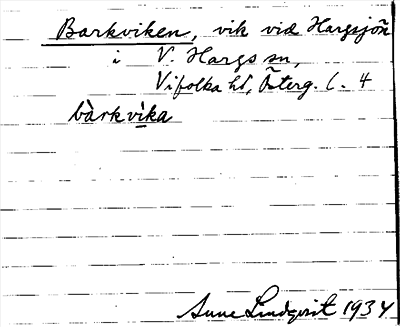 Barkviken, vik vid Hargsjön
i V. Hargs sn,
Vifolka hd, Österg. l. 4
bàrkvìka
Sune Lindqvist 1934